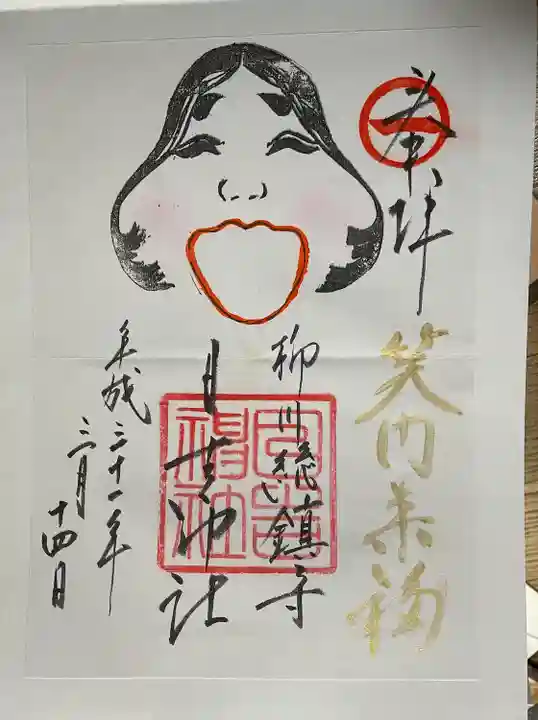 奉拝
笑門来福
柳川総鎮守
日吉神社
平成三十一年
三月
十四日